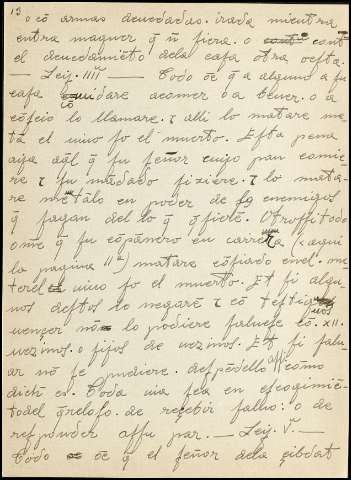 13
o cõ armas deuedadas. irada mientra
entra maguer q̃ ñ fiera. o cont
el deuedamiẽto dela casa otra ꝑsta.
— Leỹ. IIII — Todo õe q̃ a alguno a su
casa conuidare acomer o a beuer. o a
cõseio lo llamare. ⁊ alli lo matare me-
tã el uiuo so el muerto. Esta pena
aya aq̃l q̃ su señor cuyo pan comie-
re ⁊ su mãdado fiziere. ⁊ lo mata-
re metãlo en poder de sꝯ enemigos
q̃ fagan del lo q̃ q̃sierẽ. Otrossi todo
om̃e q̃ su cõpanero en carrera (aqui
la pagina 11ª) matare cõfiado enel. me-
terel uiuo so el muerto. Et si algu-
nos destos lo negarẽ ⁊ cõ testigos
uencer nõ lo podiere saluese cõ. XII.
uezinos. o fijos de uezinos. Et si salu-
ar nõ se pudiere. despẽdello assi cõmo
dich̃ es. Toda uia sea en escogimiẽ-
to del q̃reloso. de reçebir saluo: o de
respõnder assu par. — Leỹ. V —
Todo õe q̃ el señor dela çibdat